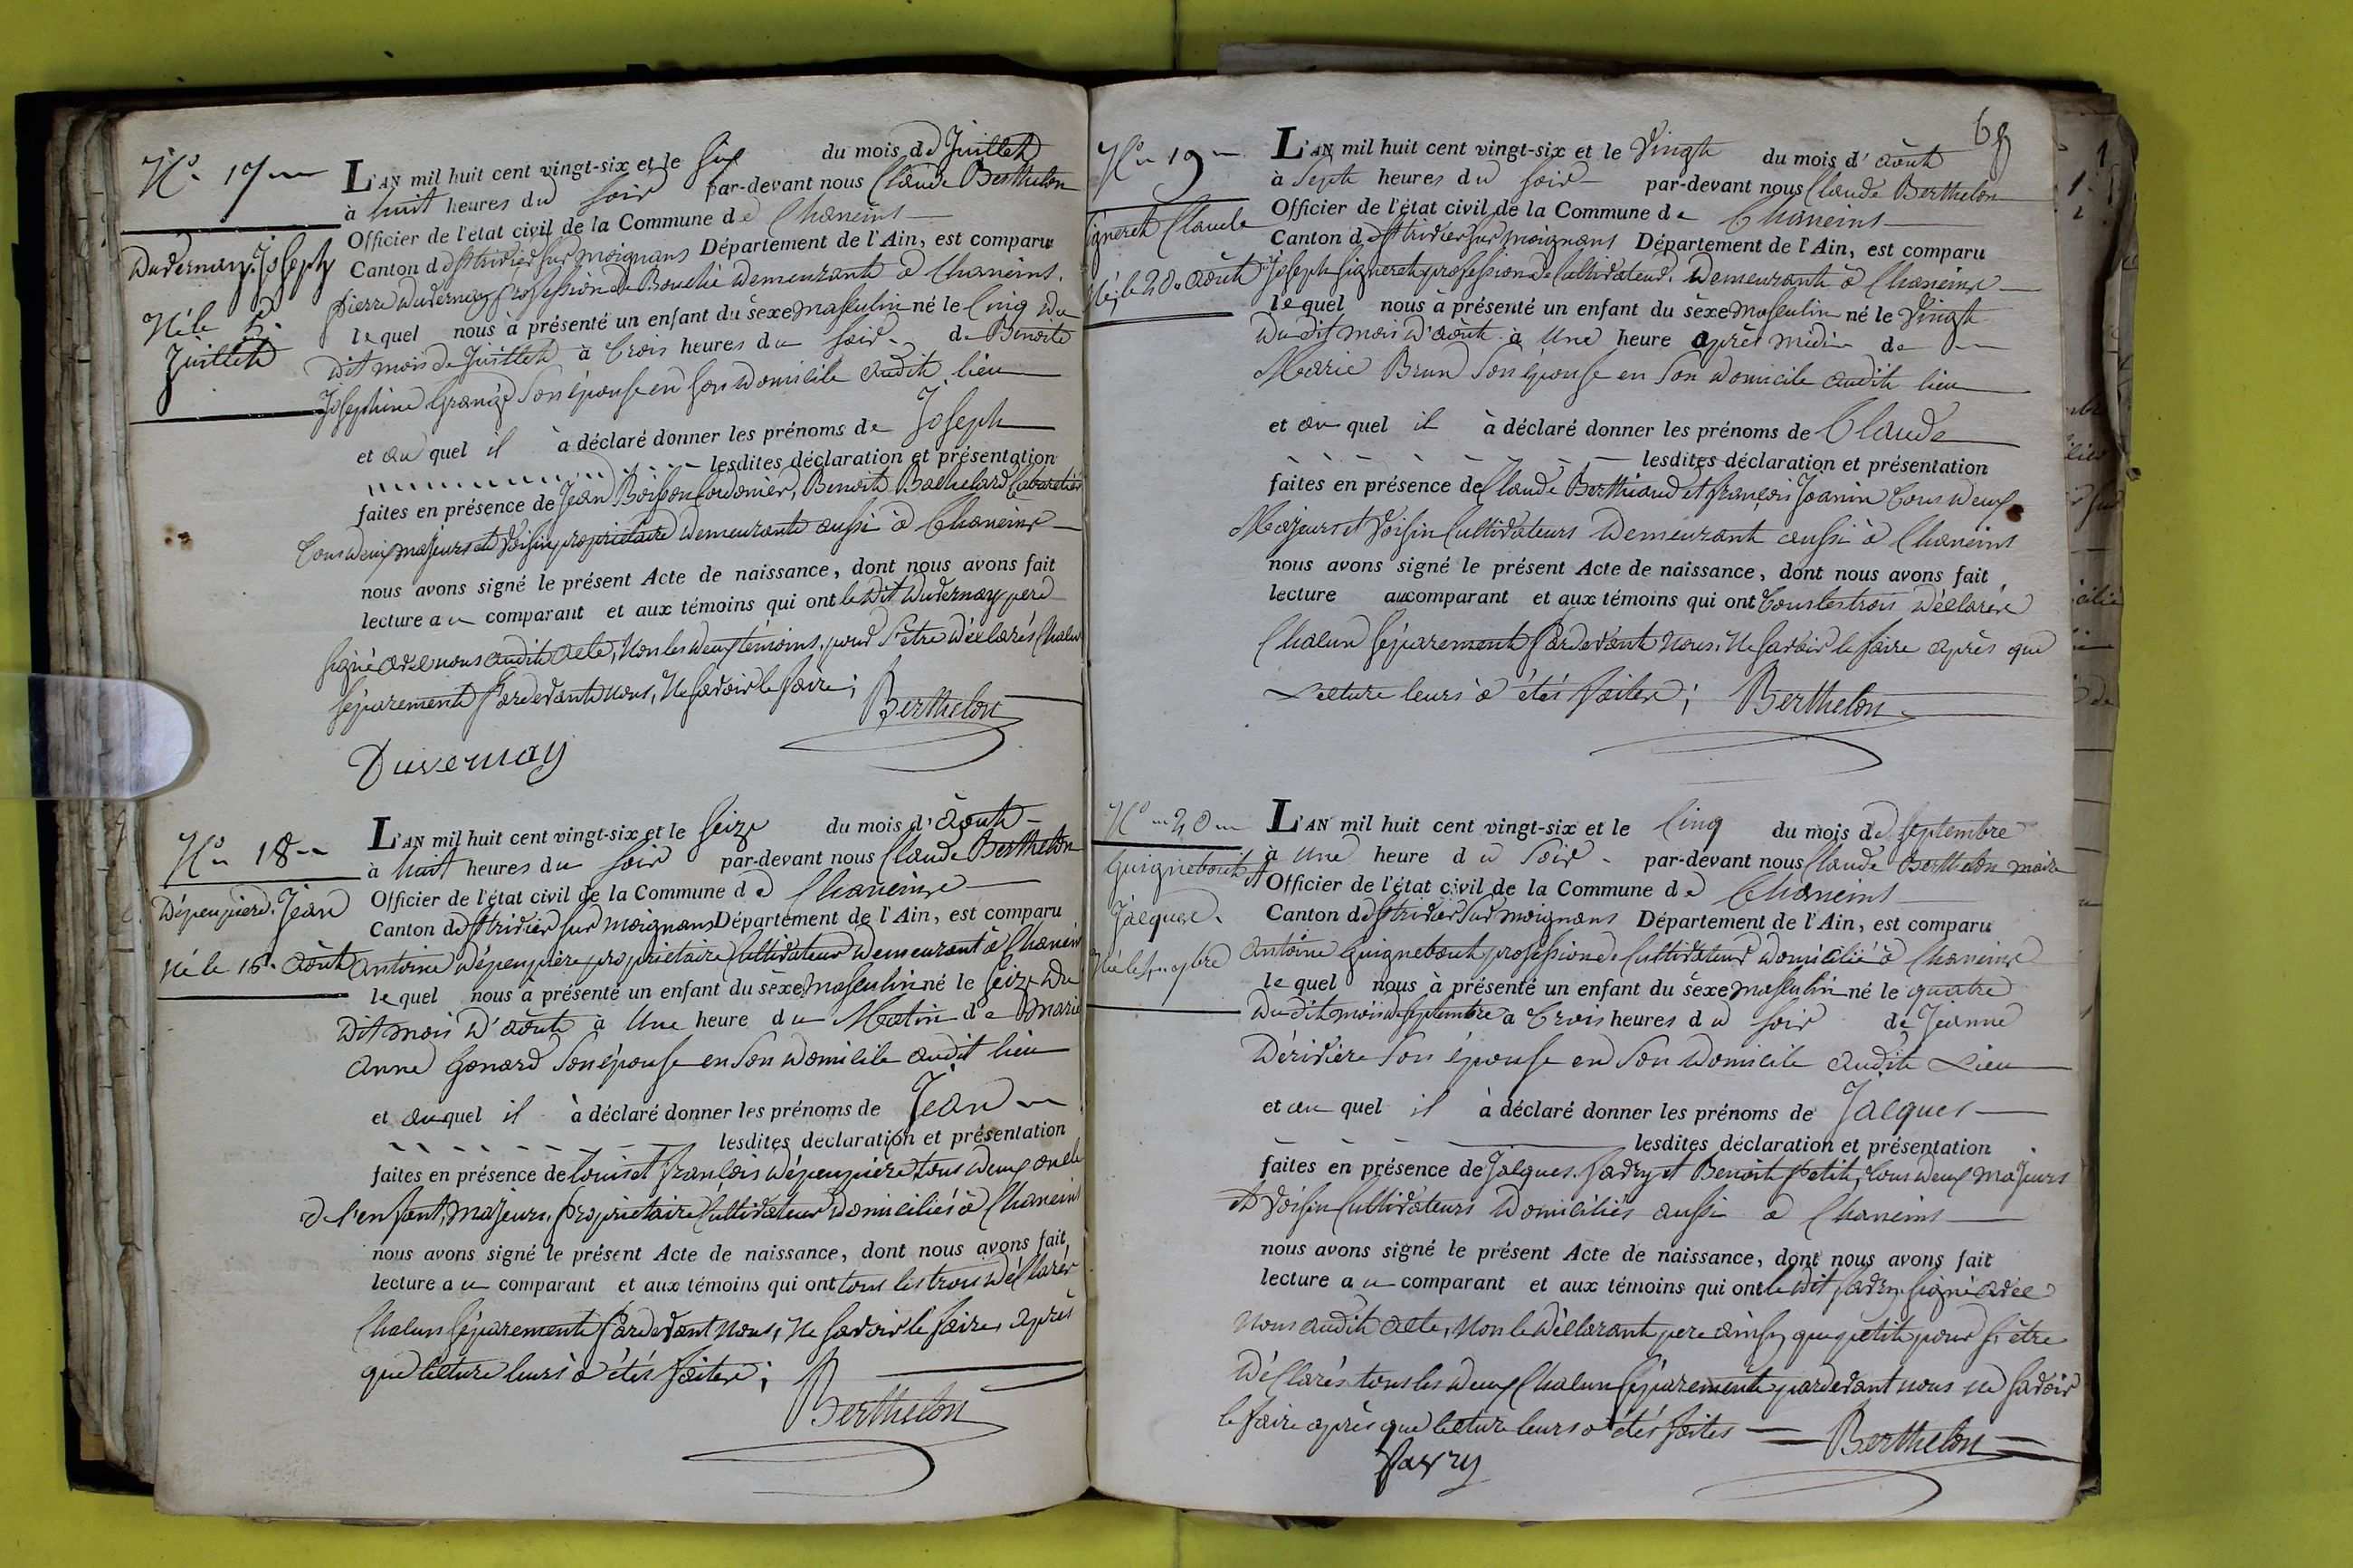 N.º 17
Duvernay Joseph
Né le 5.
Juillet
L'AN mil huit cent vingt-six et le six du mois de Juillet
à huit heures du soir par-devant nous Claude Berthelon
Officier de l'état civil de la Commune de Chaneins
Canton de St trivier sur moignans Département de l'Ain, est comparu
Pierre Duvernay profession de Bouché demeurant à Chaneins.
lequel nous à présenté un enfant du sèxe masculin né le cinq du
dit mois de Juillet à trois heures du soir de Benoite
Josephine Grangé son épouse en son domicile audit lieu
et au quel il à déclaré donner les prénoms de Joseph
lesdites déclaration et présentation
faites en présence de Jean Boisson Cordonier, Benoit Bachelard Cabaretier
tous deux majeurs et voisin propriétaire demeurant aussi à Chaneins
nous avons signé le présent Acte de naissance, dont nous avons fait
lecture au comparant et aux témoins qui ont le dit Duvernay pere
signé avec nous audit acte, Non les deux témoins, pour s'être déclarés Chacun
séparement pardevant nous, Ne savoir le faire;
Berthelon
Duvernay
N.º 18
Dépeupière. Jean
né le 16. août
L'AN mil huit cent vingt-six et le seize du mois d'août
à huit heures du soir par-devant nous Claude Berthelon
Officier de l'état civil de la Commune de Chaneins
Canton de St trivier sur moignans Département de l'Ain, est comparu
antoine dépeupière propriétaire Cultivateur demeurant à Chaneins
lequel nous à présenté un enfant du sèxe masculin né le seize du
dit mois d'août à Une heure du Matin de marie
anne Genard son épouse en son domicile audit lieu
et au quel il à déclaré donner les prénoms de Jean
lesdites déclaration et présentation
faites en présence de louis et françois dépeupière tous deux oncle
de l'enfant, majeurs, propriétaire Cultivateur domiciliés à Chaneins
nous avons signé le présent Acte de naissance, dont nous avons fait
lecture au comparant et aux témoins qui ont tous les trois déclarés
Chacun séparement pardevant nous, Ne savoir le faire, après
que lecture leurs à étés faites;
Berthelon
68
N.º 19
Signeret Claude
Né, le 20. août
L'AN mil huit cent vingt-six et le Vingt du mois d'août
à Septe heures du soir par-devant nous Claude Berthelon
Officier de l'état civil de la Commune de Chaneins
Canton de St trivier sur moignans Département de l'Ain, est comparu
Joseph Signeret profession de Cultivateur. demeurant à Chaneins
lequel nous à présenté un enfant du sèxe masculin né le Vingt
du dit mois d'août à Une heure après midi de
Marie Brun son épouse en son domicile audit lieu
et au quel il à déclaré donner les prénoms de Claude
lesdites déclaration et présentation
faites en présence de Claude Berthiaud et françois Joanin tous deux
Majeurs et voisin Cultivateurs demeurant aussi à Chaneins
nous avons signé le présent Acte de naissance, dont nous avons fait
lecture au comparant et aux témoins qui ont tous les trois déclarés
Chacun séparement pardevant nous. Ne savoir le faire après que
Lecture leurs à étés faites; Berthelon
N.º 20
Guignebout
Jacques.
Né le 4. 7bre
L'AN mil huit cent vingt-six et le cinq du mois de septembre
à une heure du soir par-devant nous Claude Berthelon maire
et Officier de l'état civil de la Commune de Chaneins
Canton de St trivier sur moignans Département de l'Ain, est comparu
antoine Guignebout profession de Cultivateur domicilié à Chaneins
lequel nous à présenté un enfant du sèxe masculin né le quatre
du dit mois de septembre à trois heures du soir de Jeanne
Dérivière son épouse en son domicile audit Lieu
et au quel il à déclaré donner les prénoms de Jacques
lesdites déclaration et présentation
faites en présence de Jacques. favry et Benoit petit, tous deux majeurs
et voisin Cultivateurs domiciliés aussi à Chaneins
nous avons signé le présent Acte de naissance, dont nous avons fait
lecture au comparant et aux témoins qui ont le dit favry signé avec
nous audit acte, Non le déclarant pere ainsy que petit pour s'être
déclarés tous les deux Chacun séparement pardevant nous ne savoir
le faire après que lecture leurs à étés faites Berthelon
favry